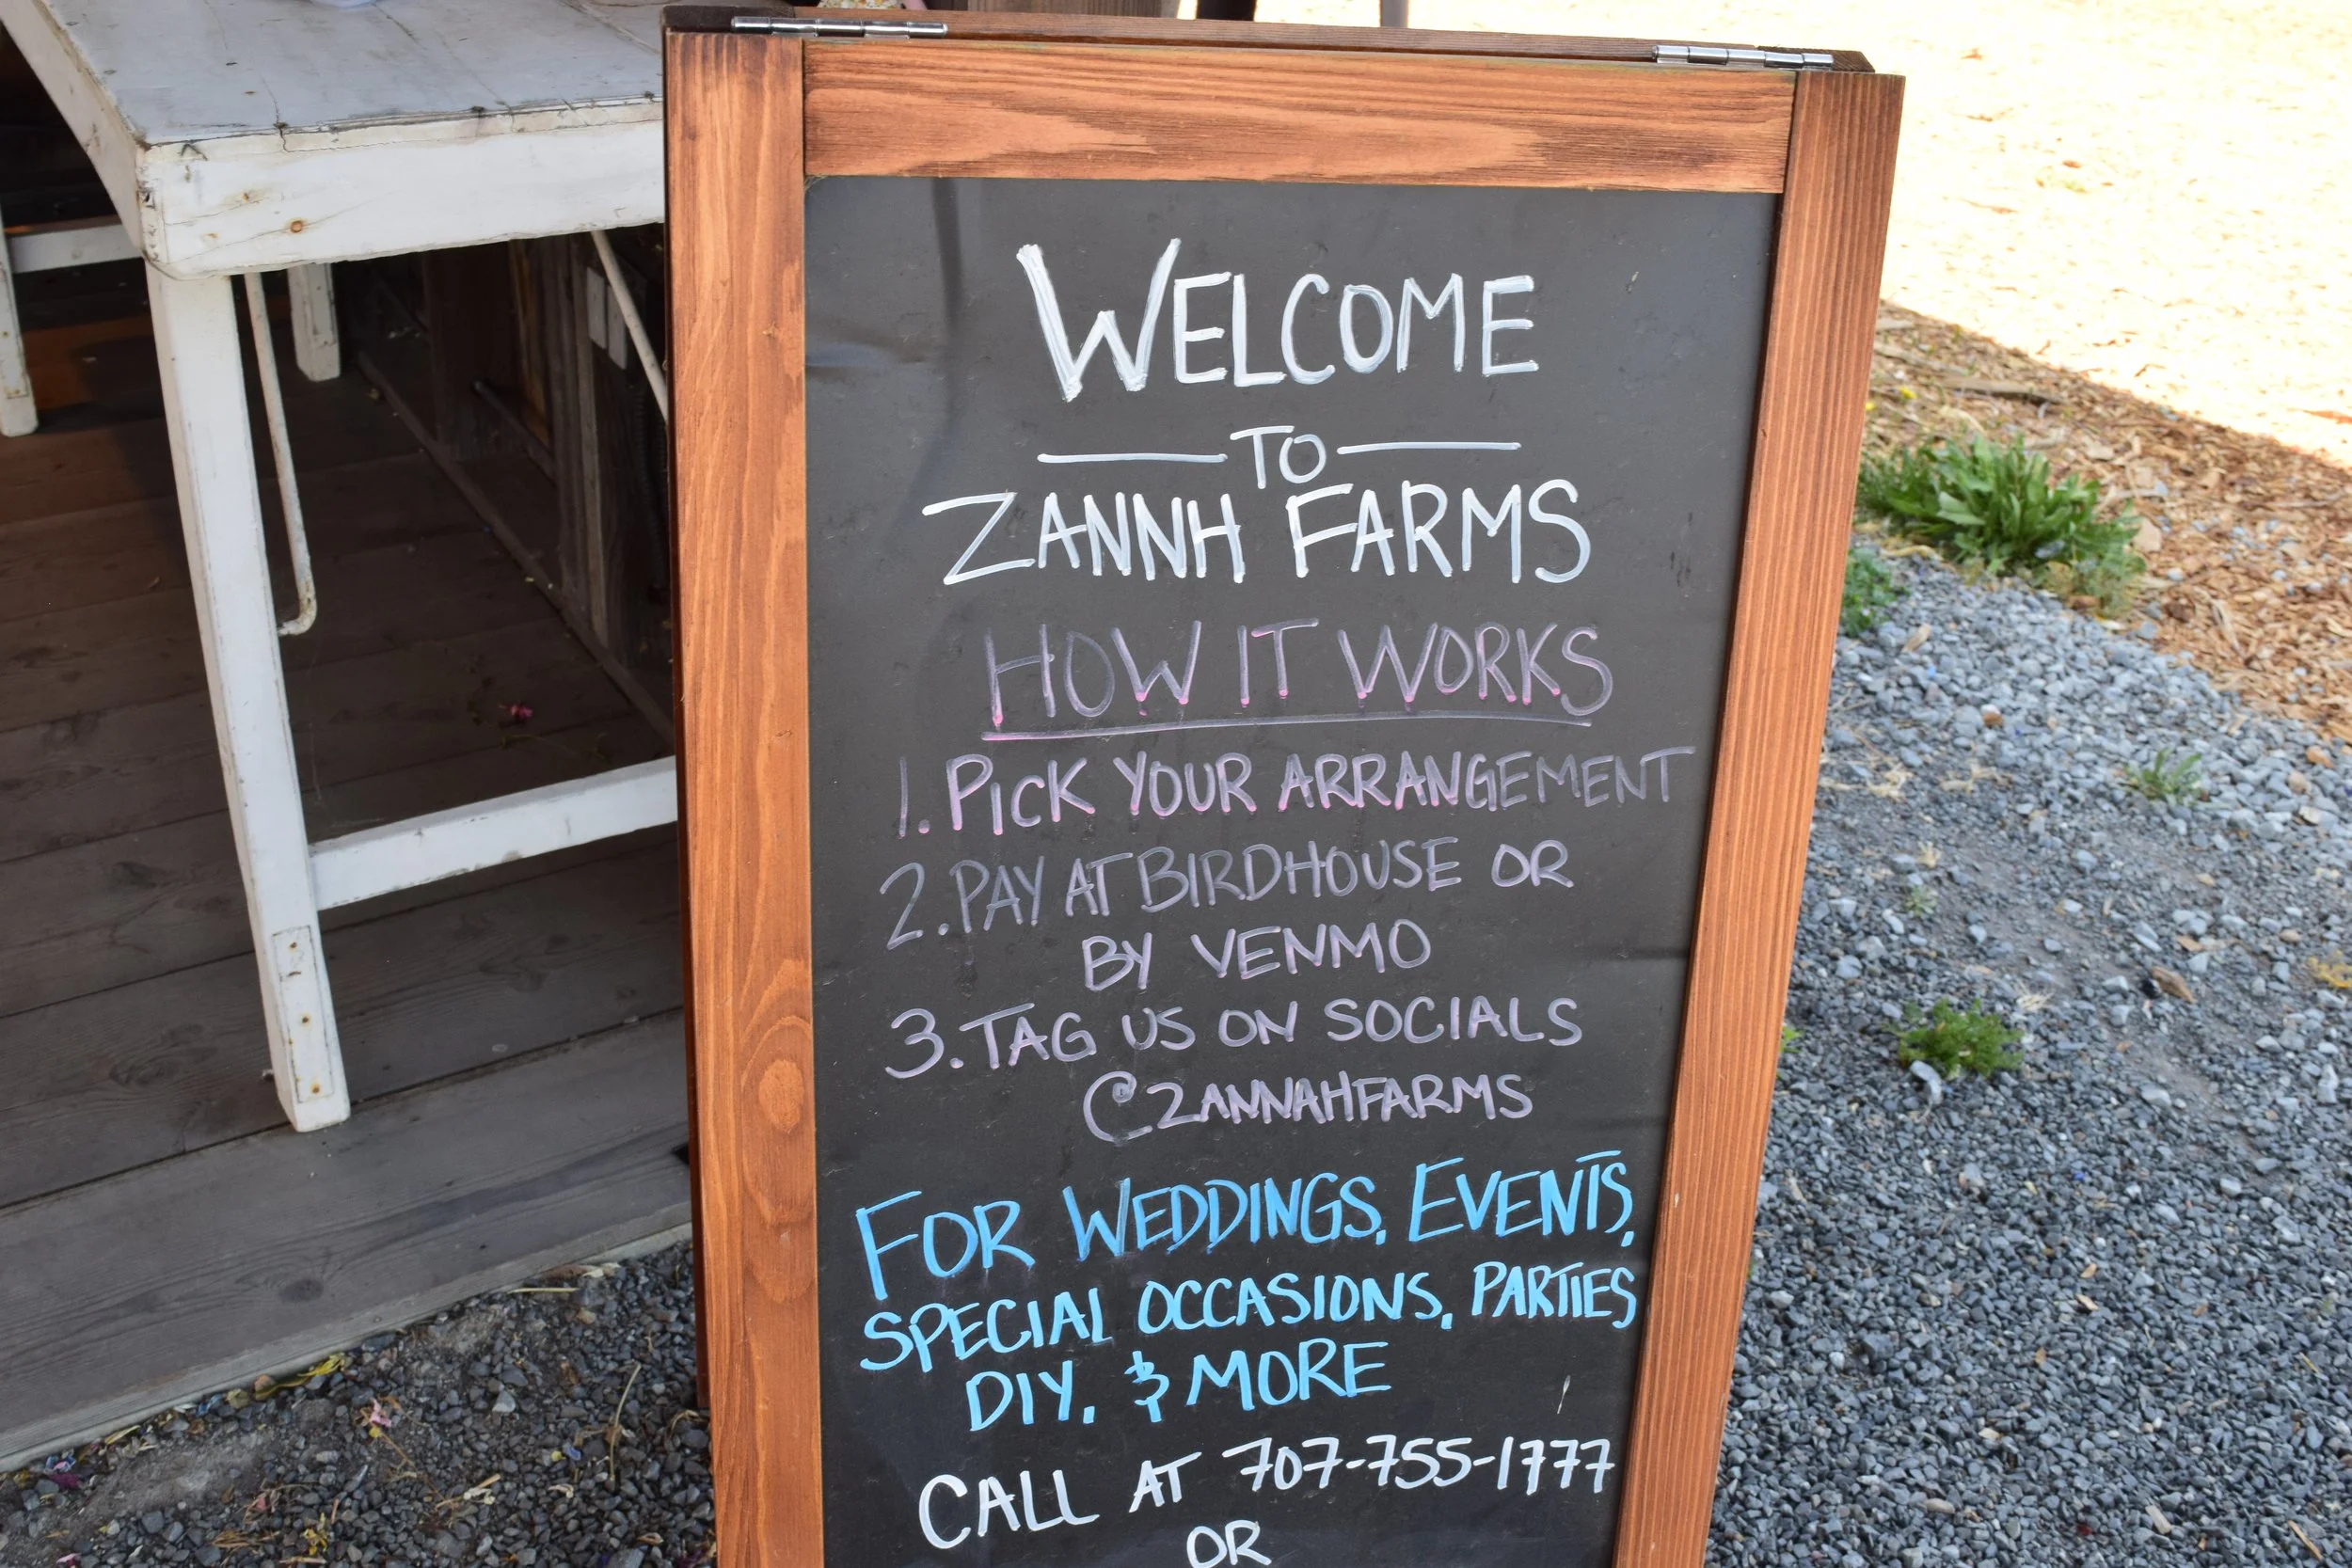 WELCOME
TO
ZANNH FARMS
HOW IT WORKS
1. PICK YOUR ARRANGEMENT
2. PAY AT BIRDHOUSE OR
BY VENMO
3. TAG US ON SOCIALS
@ZANNAHFARMS
FOR WEDDINGS, EVENTS,
SPECIAL OCCASIONS, PARTIES
DIY, & MORE
CALL AT 707-755-1777
OR